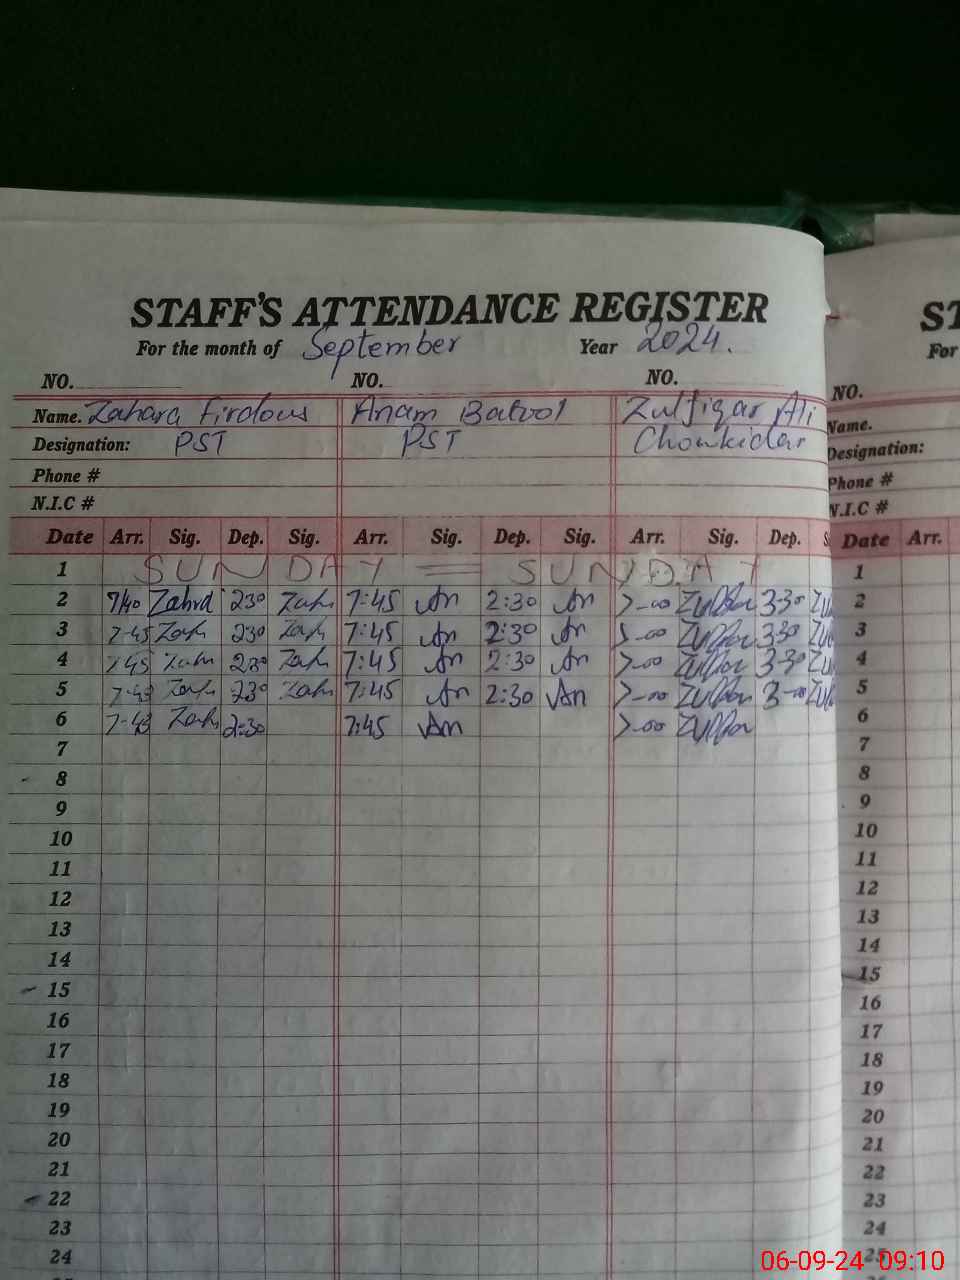 STAFF'S ATTENDANCE REGISTER
For the month of September Year 2024.
NO. NO. NO.
Name. Zahara Firdous Anam Batool Zulfiqar Ali
Designation: PST PST Chowkidar
Phone #
N.I.C #
Date Arr. Sig. Dep. Sig. Arr. Sig. Dep. Sig. Arr. Sig. Dep. S
1 SUNDAY = SUNDAY
2 7/40 Zahra 230 Zah 7:45 An 2:30 An 7-00 330
3 7-45 Zah 230 Zah 7:45 An 2:30 An 330
4 745 Zah 230 Zah 7:45 An 2:30 An 7-00 330
5 7-43 Zah 230 Zah 7:45 An 2:30 An 7-00 3-00
6 7-43 Zah 2:30 7:45 An 7-00
7
8
9
10
11
12
13
14
15
16
17
18
19
20
21
22
23
24
ST
For
NO.
Name.
Designation:
Phone #
N.I.C #
Date Arr.
1
2
3
4
5
6
7
8
9
10
11
12
13
14
15
16
17
18
19
20
21
22
23
24
25
06-09-24 09:10